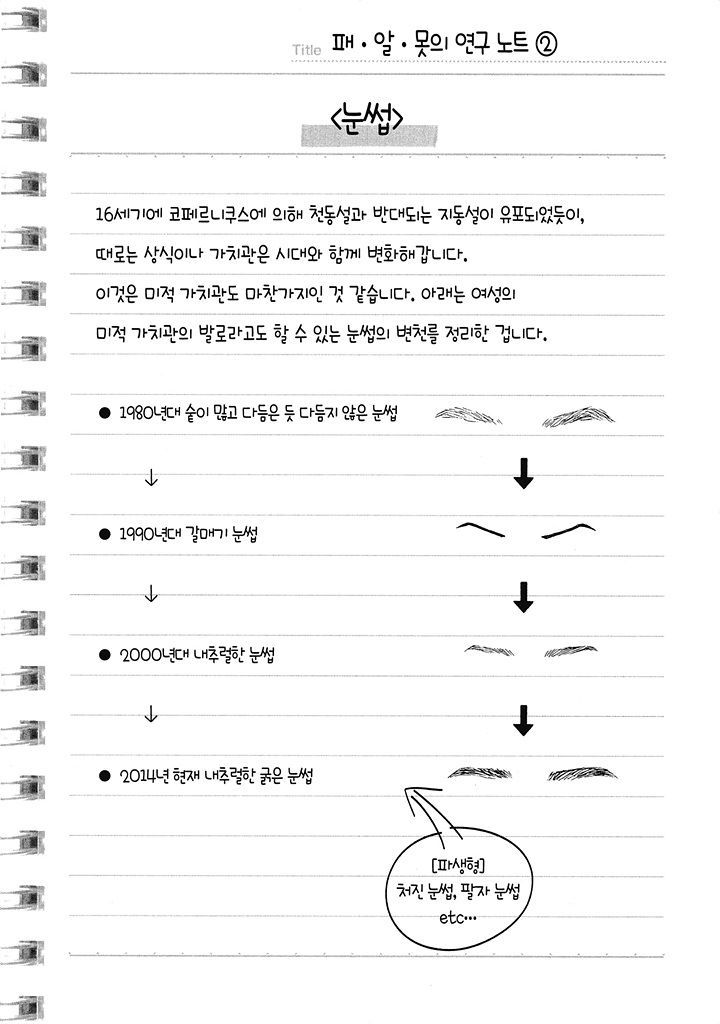 Title 패·알·못의 연구 노트 ②
<눈썹>
16세기에 코페르니쿠스에 의해 천동설과 반대되는 지동설이 유포되었듯이,
때로는 상식이나 가치관은 시대와 함께 변화해갑니다.
이것은 미적 가치관도 마찬가지인 것 같습니다. 아래는 여성의
미적 가치관의 발로라고도 할 수 있는 눈썹의 변천를 정리한 겁니다.
● 1980년대 숱이 많고 다듬은 듯 다듬지 않은 눈썹
↓
● 1990년대 갈매기 눈썹
↓
● 2000년대 내추럴한 눈썹
↓
● 2014년 현재 내추럴한 굵은 눈썹
[파생형]
처진 눈썹, 팔자 눈썹
etc…